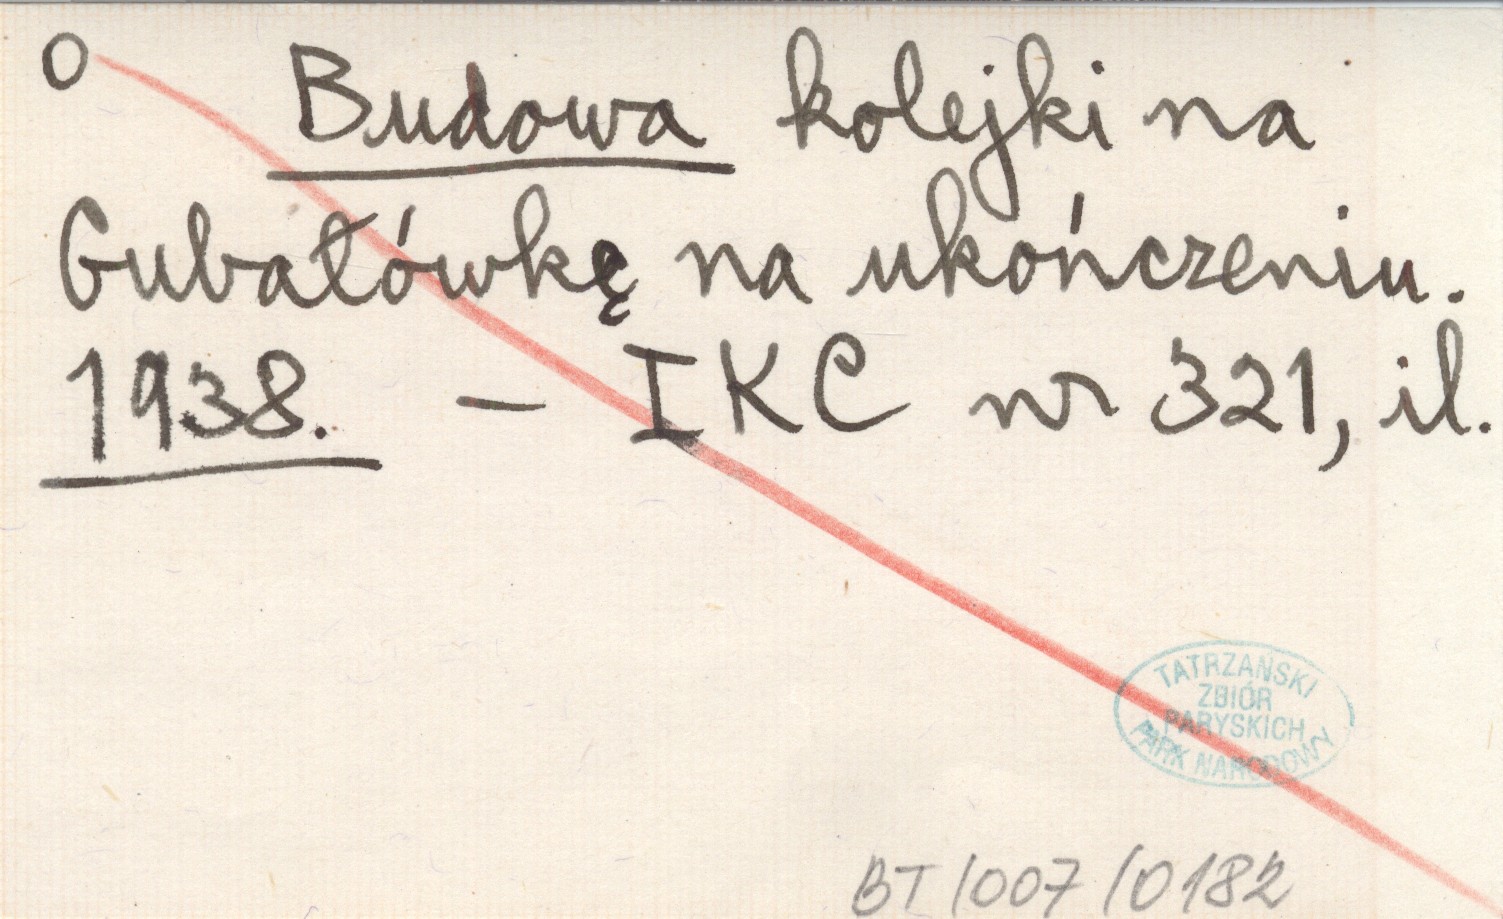 O Budowa kolejki na
Gubałówkę na ukończeniu.
1938. – IKC nr 321, il.
TATRZAŃSKI
ZBIÓR
PARYSKICH
PARK NARODOWY
BT/007/0182